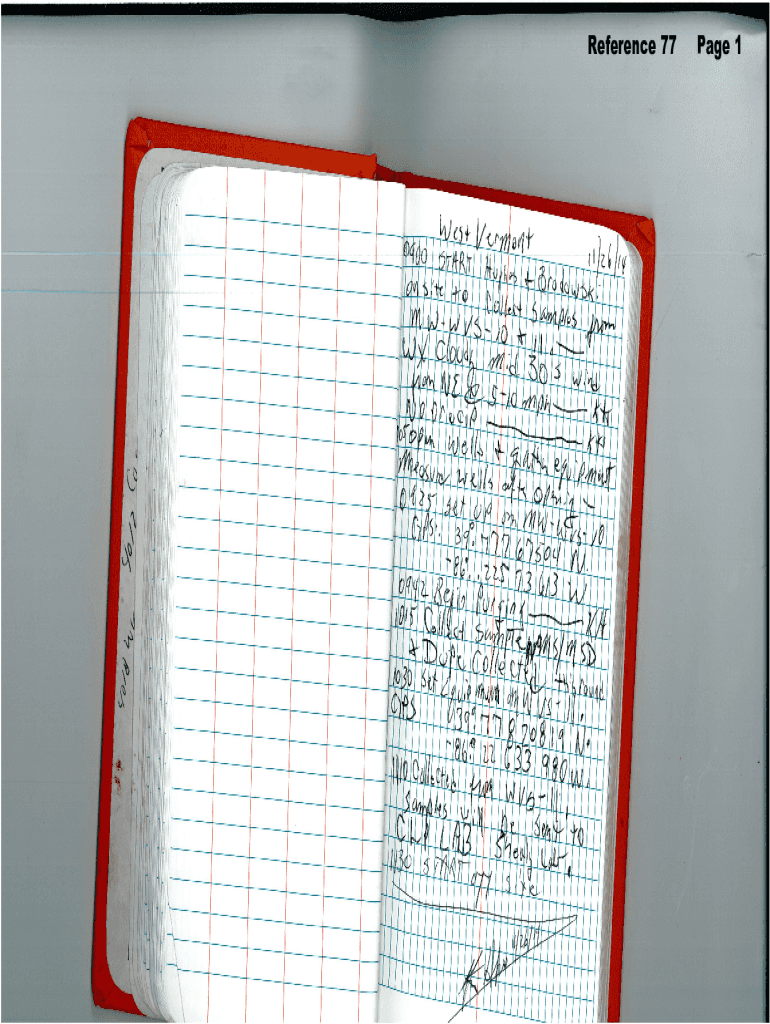 Reference 77 Page 1
West Vermont
11/26/14
0900 START Hughes & Brodowsk.
on site to Collect Samples from
MW-WVS-10 & 11.
WX Cloudy mid 30's wind
from NE @ 5-10 mph KH
No precip KH
open wells & gather equipment
measure wells after opening
0925 set up on MW-WVS-10
GPS: 39.77767504 N
-86.22573613 W
0942 Begin Purging KH
1015 Collect Sample MS/MSD
& Dupe Collected
1030 Set Equipment MWVS-11.
GPS 039.77820819 N.
-86.22633980 W.
1110 Collected from WVS-11,
Samples will be sent to
CLP LAB Shealy
1130 START off site
11/26/14